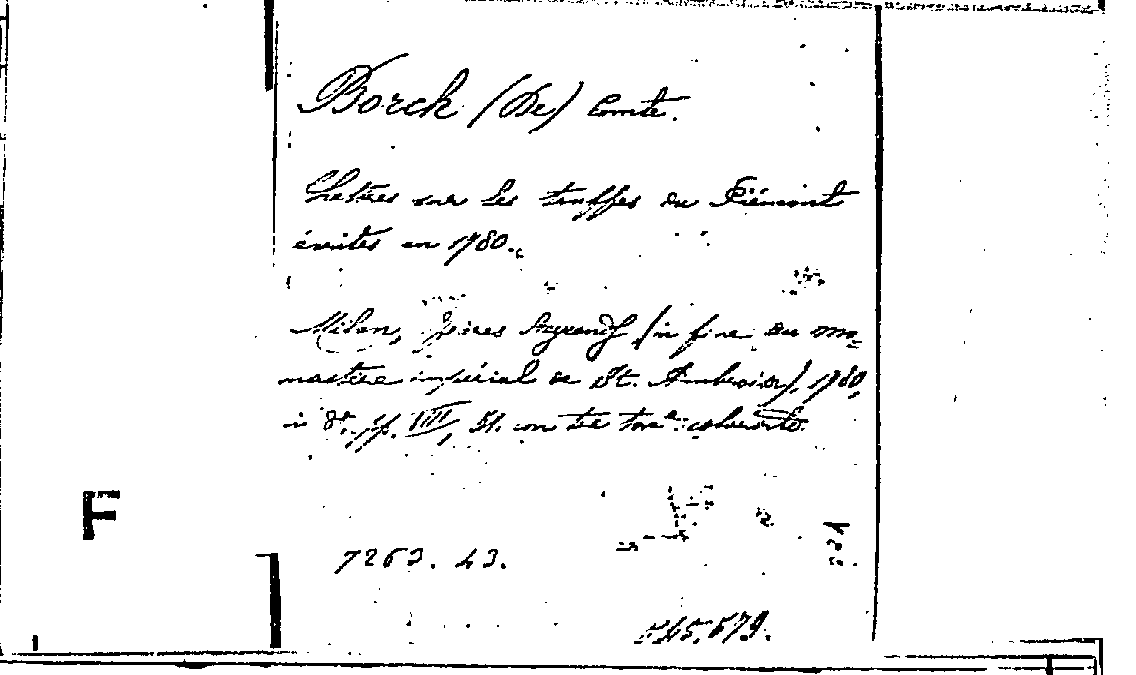 Borch (De) Comte.
Lettres sur les truffes du Piémont
écrites en 1780.
Milan, frères Reycends (in fine du mo-
nastère impérial de St. Ambroise), 1780,
in 8°, pp. VIII, 51. con tre tav.e colorate.
F
7263. 43.